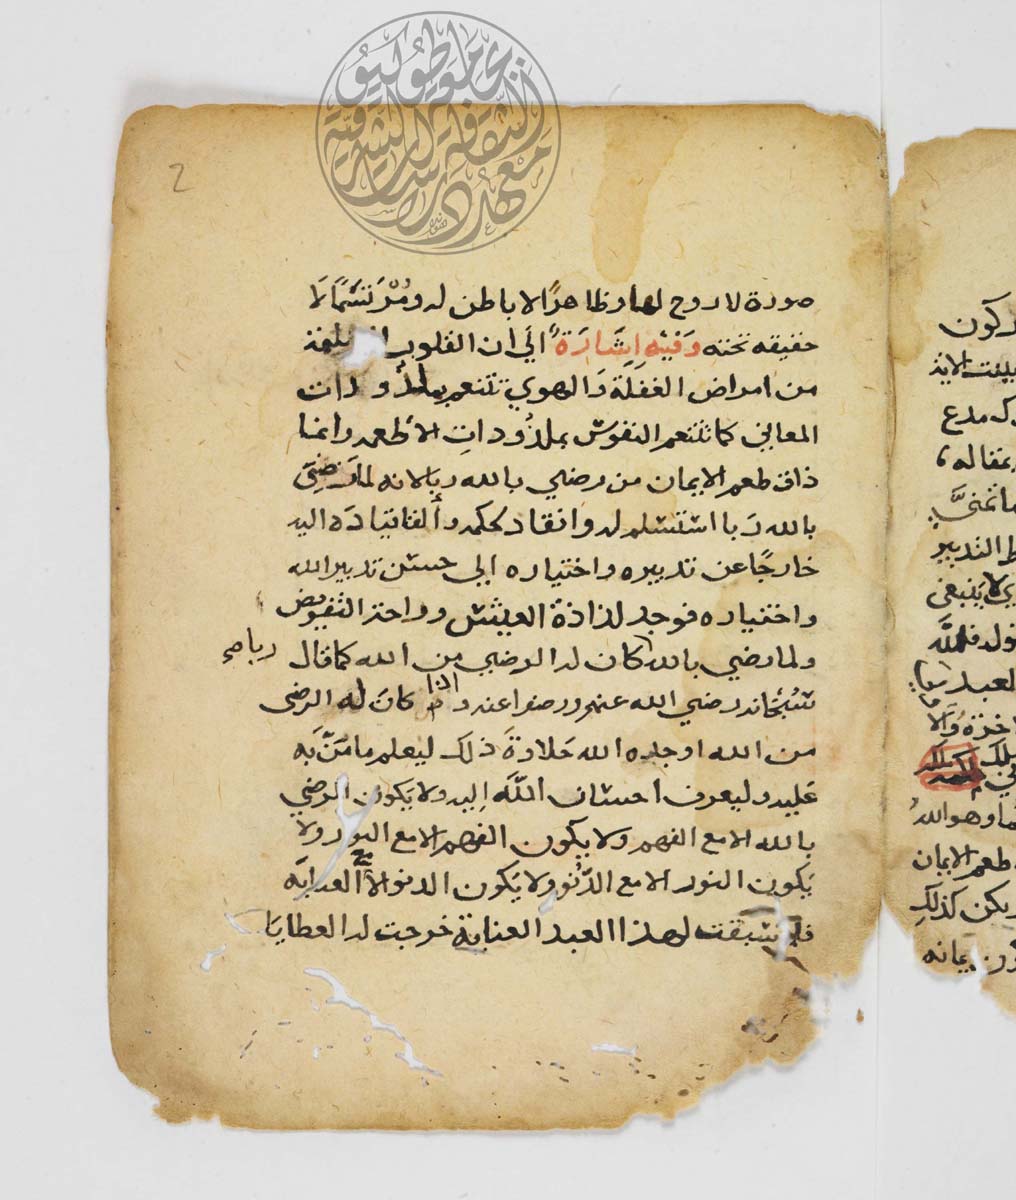 معهد الثقافة والدراسات الشرقية جامعة طوكيو
2
صورة لا روح لها وظاهرًا لا باطن له ومُرْتَسَمًا لَا
حقيقه تحته وَفيْه إشَارَةٌ الي ان القلوب
من امراض الغفلة وَالهوي تتنعم بملذوذات
المعاني كما تتنعم النفوس بملذُوذاتِ الاطعمه وانما
ذاق طعم الايمان من رضي بالله ربا لانه لما رَضِىَ
بالله رَبا اسْتسْلم له وانقاد لحكمه وألقا قيادَه اليه
خارجًا عن تدبيره واختياره الي حسن تدبير الله
واختياره فوجد لذاذة العيش وراحة التفويض
ولما رضي بالله كان له الرضي من الله كما قال
ربا صح
سُبْحَانه رضي الله عنهم ورضوا عنه واذا كانَ له الرضى
من الله اوجده الله حَلاوَةَ ذلك ليعلم ما مَنَّ به
عليه وليعرف احسان اللَّه اليه ولا يكون الرضي
بالله الا مع الفهم ولا يكون الفهم الا مع النور ولا
يَكون النور الا مع الدّنو ولا يَكون الدنو الا مع العنايَه
فلما سَبقت لهذا العبد العناية خرجت له العطايَا
كون
مدع
بمقاله
التدبير
ينبغي
العبد
وهو اللهُ
طعم الايمان
يكن كذلك
يمانه